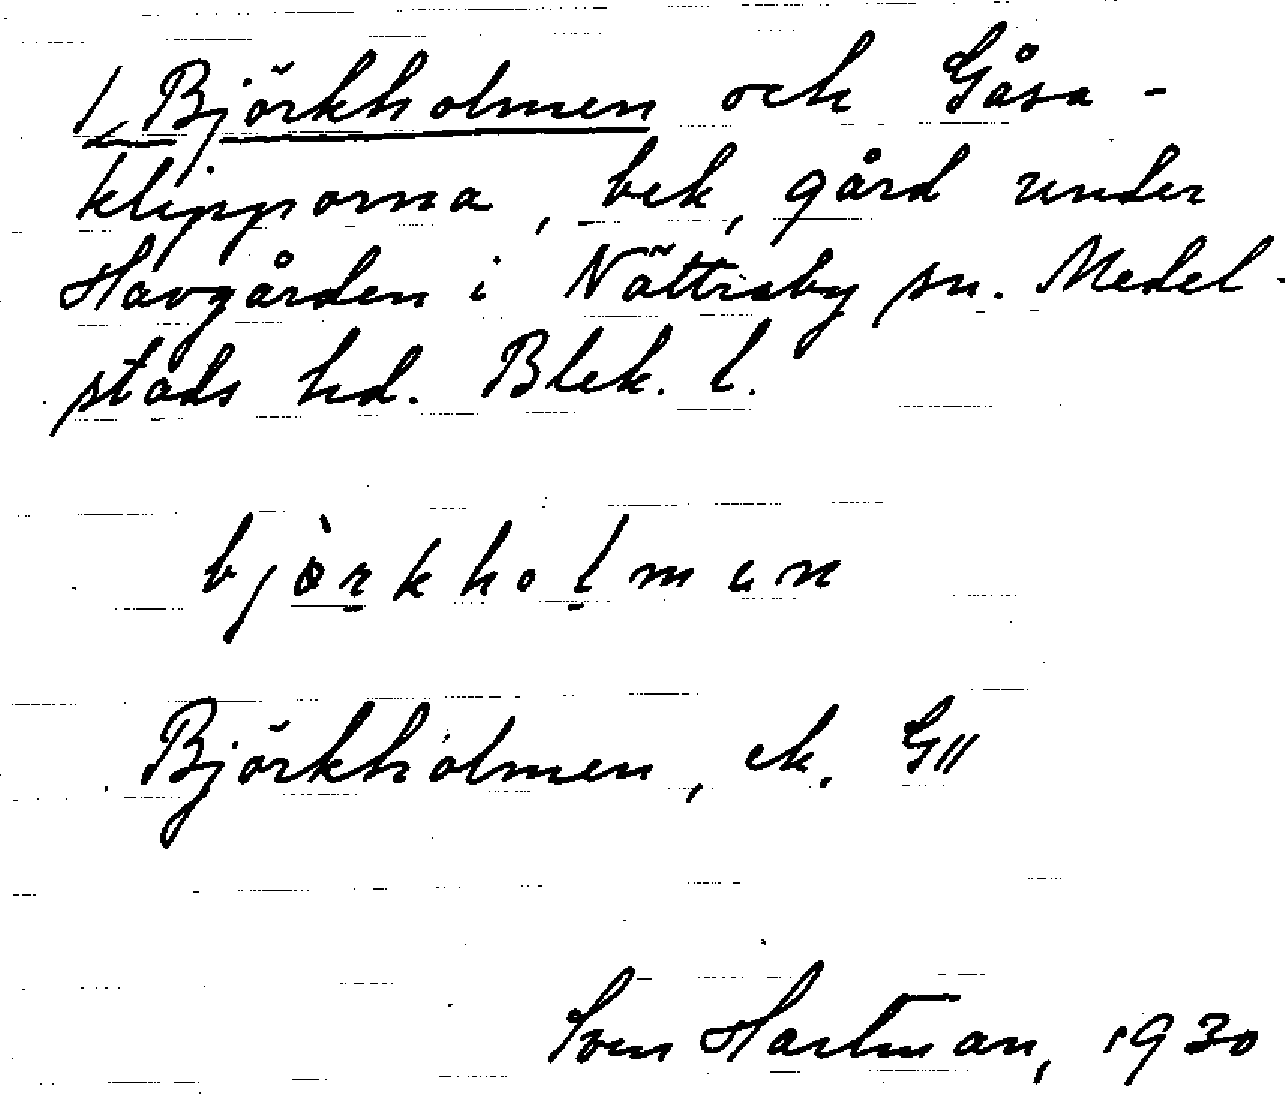 1, Björkholmen och Gåsa-
klipporna, bek, gård under
Havgården i Nättraby sn. Medel-
stads hd. Blek. l.
bjòrkholmen
Björkholmen, ek. G11
Sven Hartman, 1930